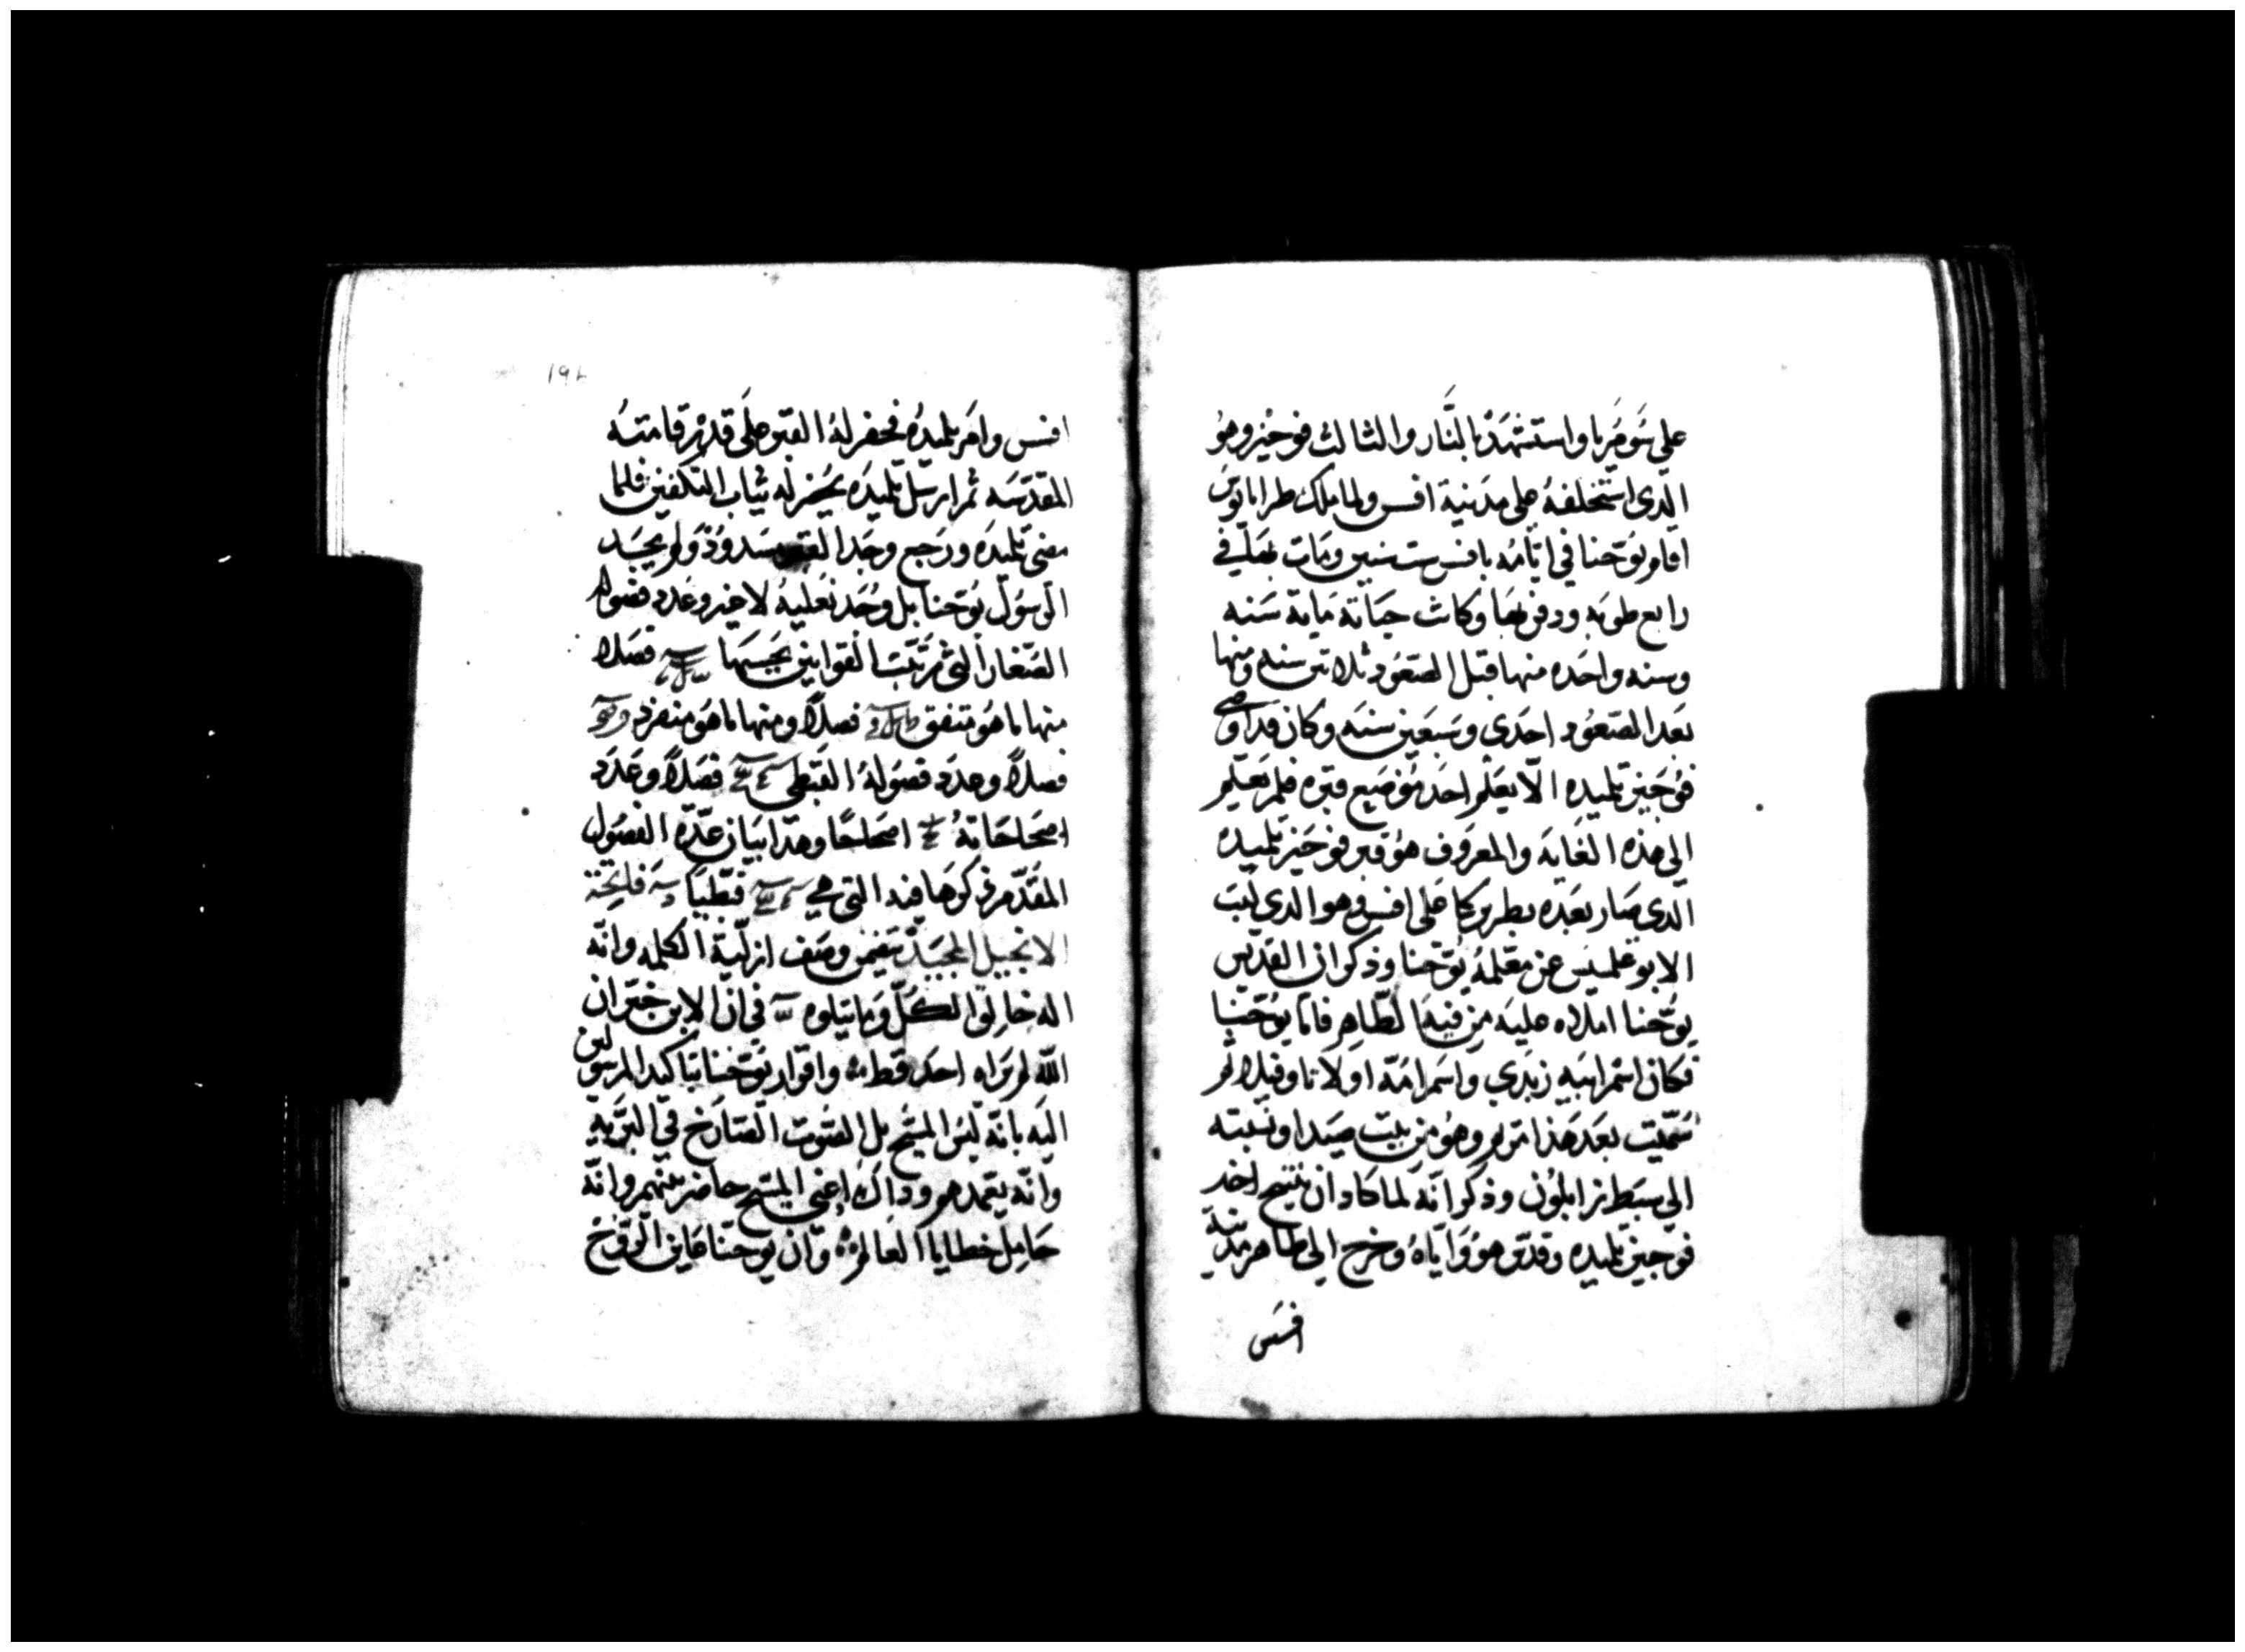 على سَوميَريا واستشهدَ بالنَّار والثالث فوخيز وهوُ
الّدى استخلفهُ على مدَينية افسس ولما ملك طرايانوس
اقام يوُحنا في ايَّامُه بافسس ست سنين وَمات بهَا في
رابع طوبَه ودفن بهَا وكانت حَياتهَ مَاية سَنه
وسنه واحَده منها قبل الصّعُود ثلاتين سنه ومنها
بعَد الصّعُود احَدى وسَبعَين سَنه وكان قد اوصى
فوُجَيز تلميده الّا يعَلم احَد موُضَع قبره فلم يَعَلم
الى هذه الغَايَه والمعرَوف هوُ قبر فوخَيز تلميده
الّدى صَار بعَده بطريركا عَلى افسس وهو الدى كتبَ
الابوغلمسيَس عن معَّلمهُ يوُحّنا وذكر ان القدّيس
يوُحّنا املاه عليَه من فيهَ الطّاهِر فامَا يوُحّنا
فكان اسْم ابَيه زبَدي واسَم امُّه اولا تاوفيلا ثم
سُمّيت بعَد هَذا مَريم وهوُ من بيت صَيدا ونسبته
الى سبَط زابلوُن وذكر انّه لمَا كاد ان يتنيح اخد
فوّجيز تلميده وقدّس هوُ وَايّاهُ وَخرج الى ظاهر مَدينة
افسَس
١٩٢
افسس وامَر تلميدُه فحفر لهُ القبر على قَدر قامتهُ
المقدّسَه ثم ارسَل تلميدَه يحُضر له ثياب التكفين فلما
مضى تلميدَه ورَجع وجَد القبر مسَدودًا ولم يَجَد
الرّسوُل يوُحّنا بل وُجَد نعَليهُ لاغير وعَدد فصَوله
الصّغار التى رتّبَت القوانين بحَسبهَا فصَلاً
منها ما هوُ متفق فصَلاً ومنها ما هوَ منفرد
فصلاً وعدَد فصَولهُ القبَطى فصَلاً وعَدَد
اصَحاحَاتهُ اصَحاحًا وهدا بيَان عدّة الفصَول
المقَدّم ذكرهَا فيه التى هي قبّطيًا فاتحة
الانجيل المجيَد تتضمن وصَف ازليّة الكلمه وانّه
اله خالق الكلّ وَمايتلوه في انّ الابن خبّر ان
الله لم يَراه احَد قط واقرار يوُحّنا بتاكيد المرسَولين
اليَه بانّه ليسَ المسيَّح بل الصَوت الصَّارخ في البرّيهِ
وانّه يعَمدهم وداك اعني المسيّح حاضر بينهم وانّه
حَامِل خطايا العَالم وانّ يوحّنا عَاين الرّوُح